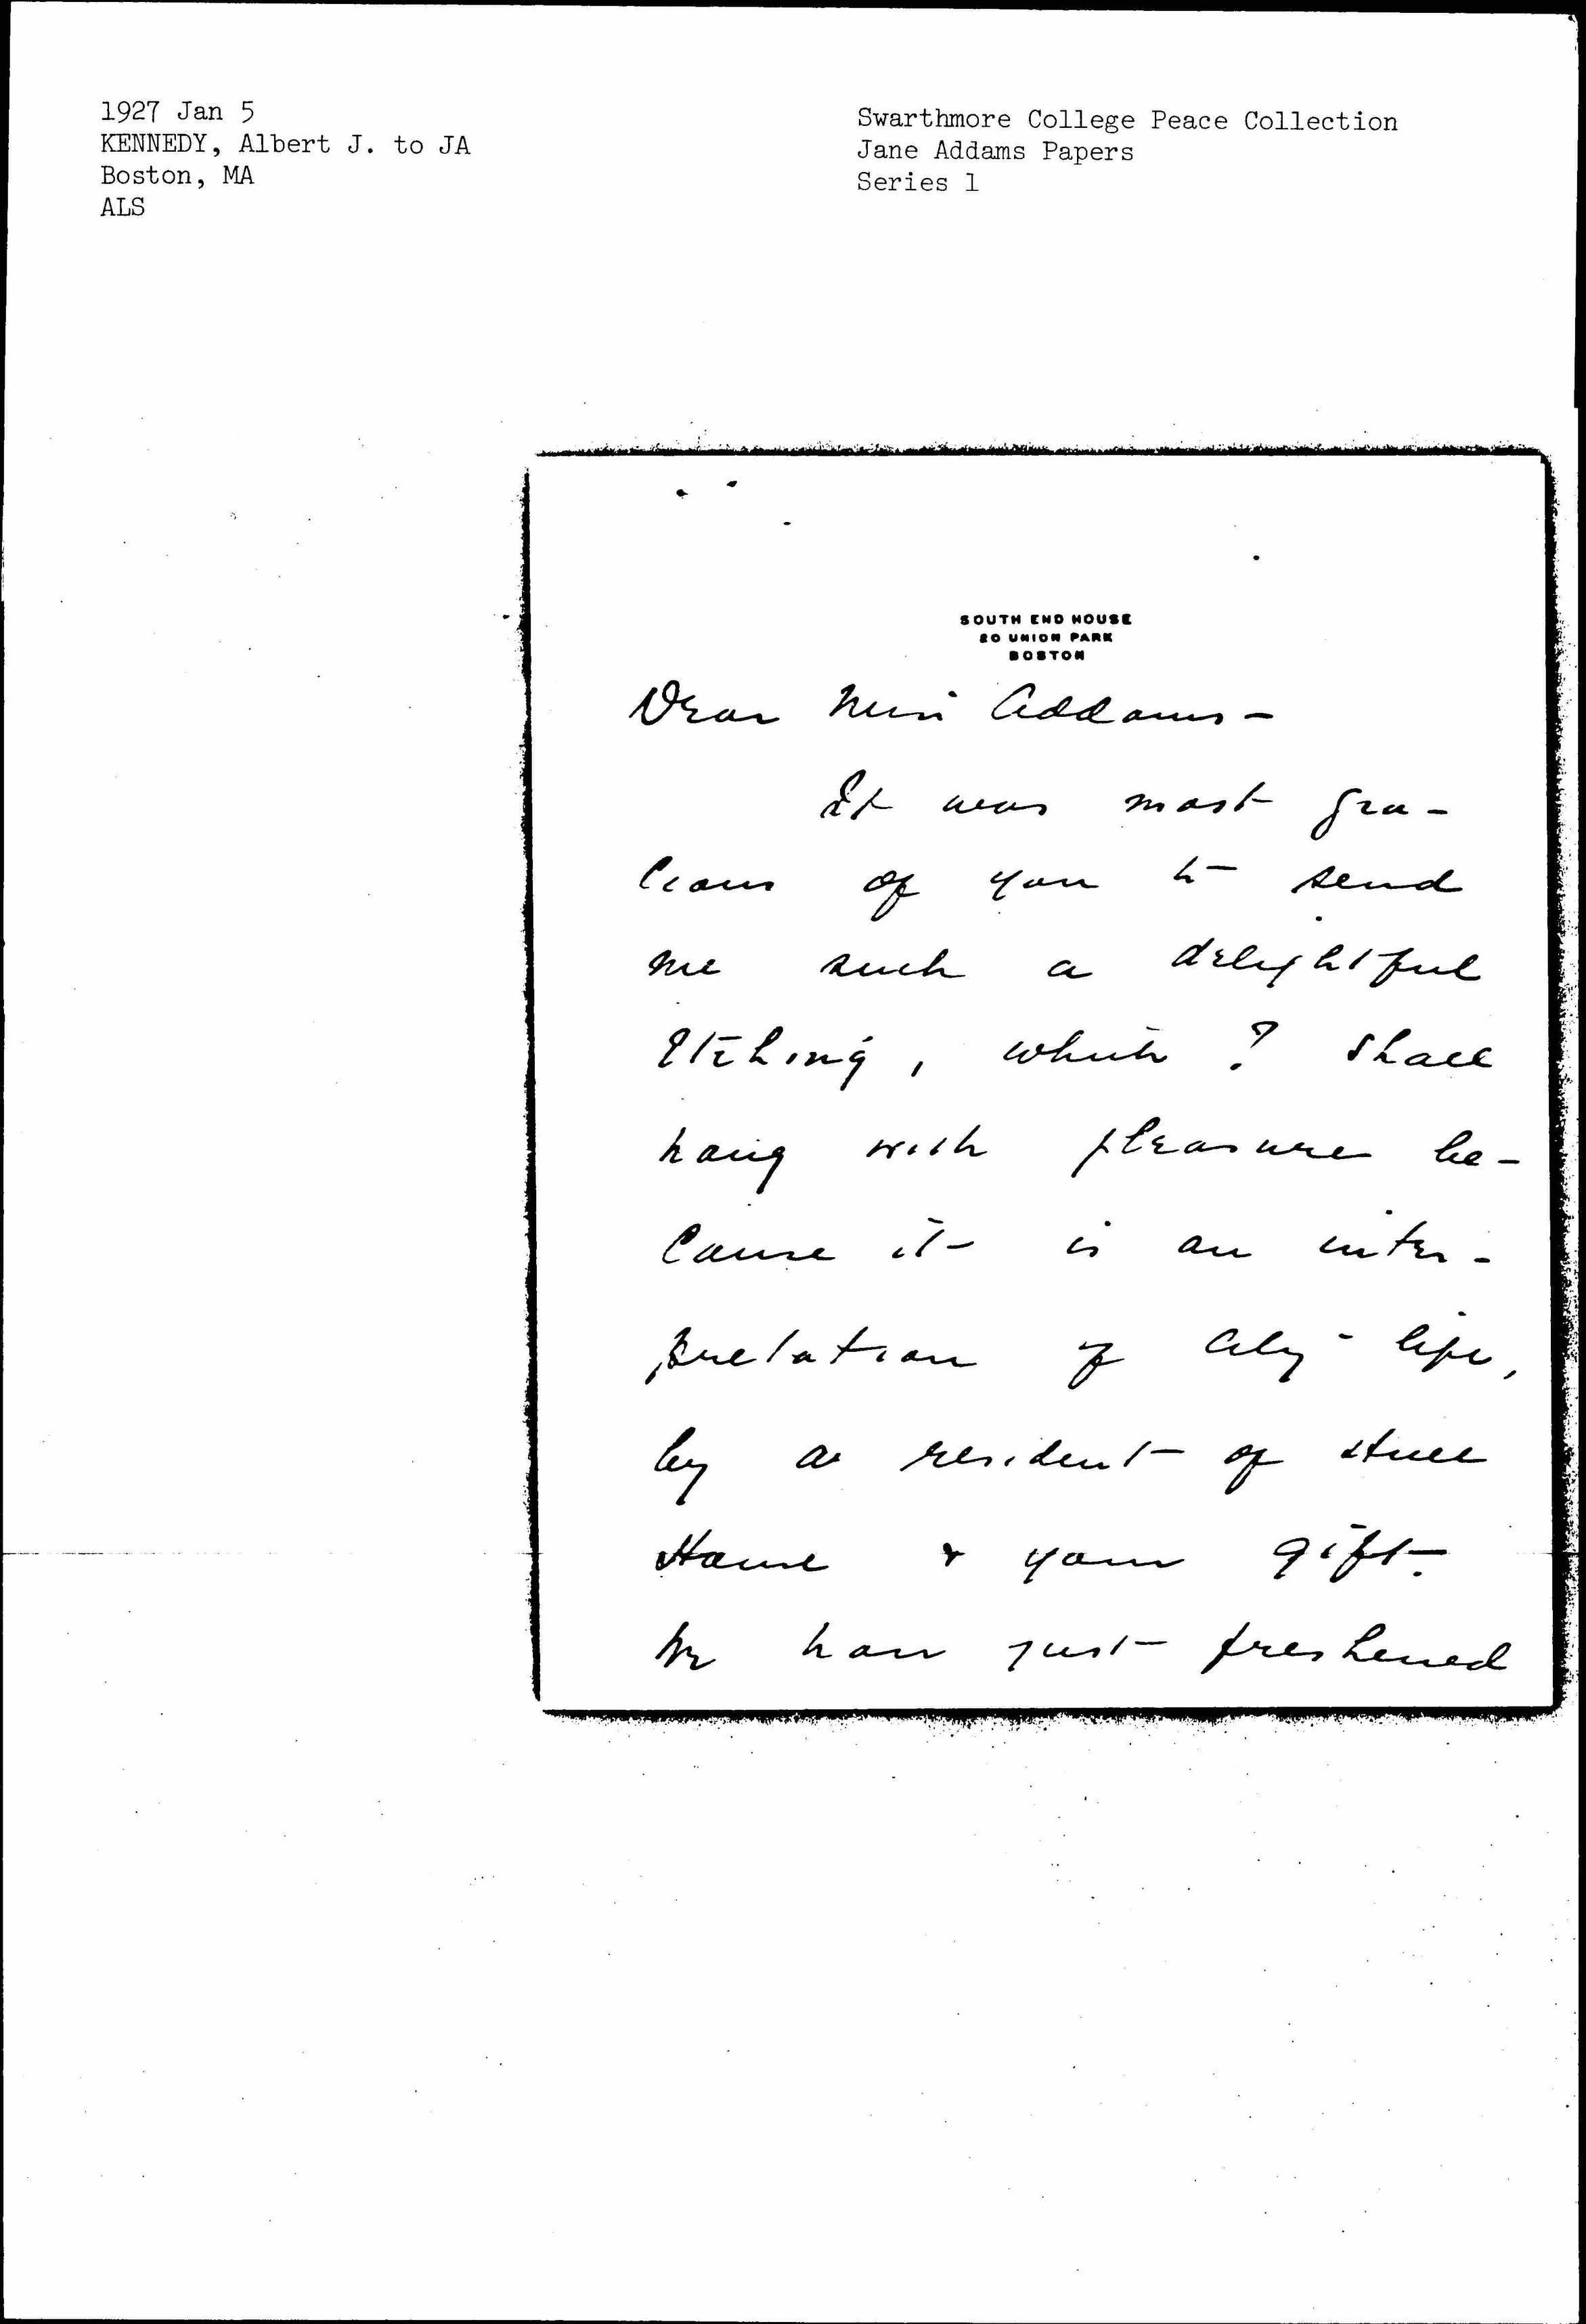 1927 Jan 5
KENNEDY, Albert J. to JA
Boston, MA
ALS
Swarthmore College Peace Collection
Jane Addams Papers
Series 1
SOUTH END HOUSE
20 UNION PARK
BOSTON
Dear Miss Addams -
It was most gra-
cious of you to send
me such a delightful
etching, which I shall
hang with pleasure be-
cause it is an inter-
pretation of city life,
by a resident of Hull
House & your gift.
We have just freshened